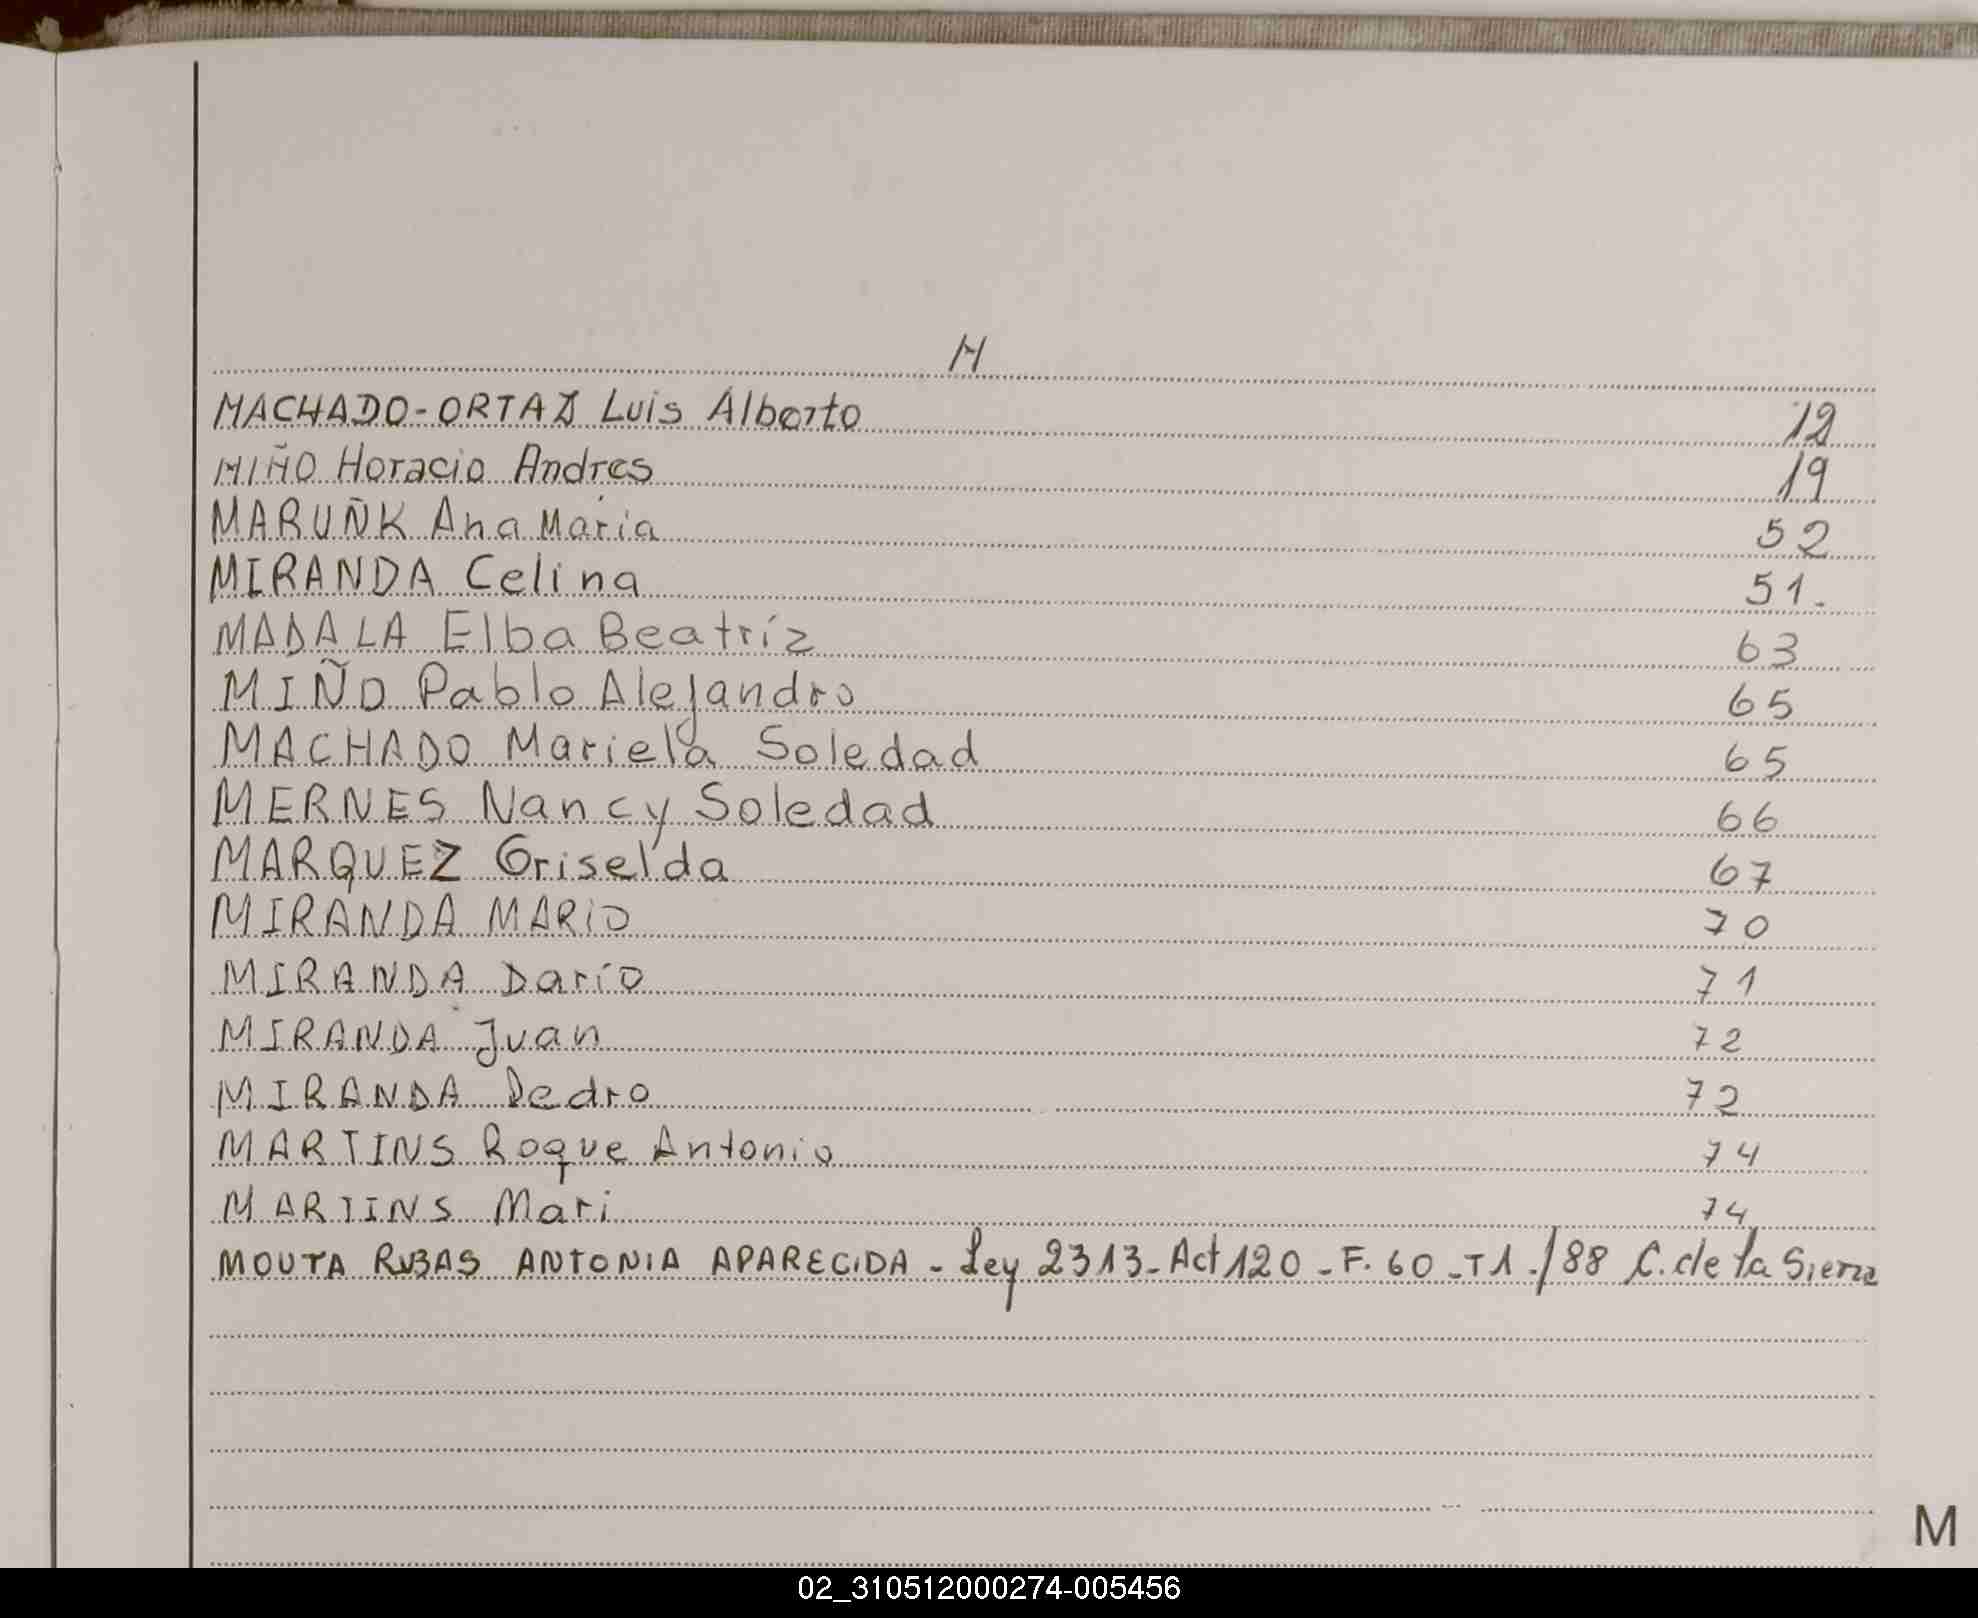 M
MACHADO-ORTAZ Luis Alberto 12
MIÑO Horacio Andres 19
MARUÑK Ana Maria 52
MIRANDA Celina 51.
MADALA Elba Beatríz 63
MIÑO Pablo Alejandro 65
MACHADO Mariela Soledad 65
MERNES Nancy Soledad 66
MARQUEZ Griselda 67
MIRANDA MARIO 70
MIRANDA Darío 71
MIRANDA Juan 72
MIRANDA Pedro 72
MARTINS Roque Antonio 74
MARTINS Mari 74
MOUTA RUBAS ANTONIA APARECIDA - Ley 2313 - Act 120 - F. 60 - T1 ./88 C. de la Sierra
M
02_310512000274-005456